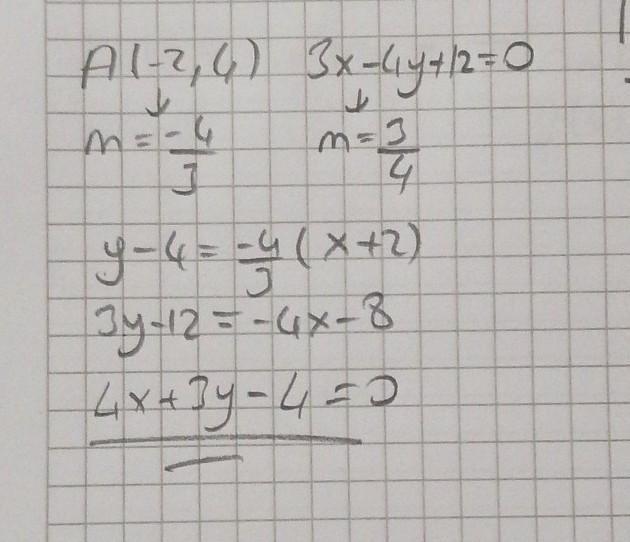 A(-2,4) 3x-4y+12=0
↓ ↓
m = -4/3 m = 3/4
y-4 = -4/3 (x+2)
3y-12 = -4x-8
4x+3y-4=0